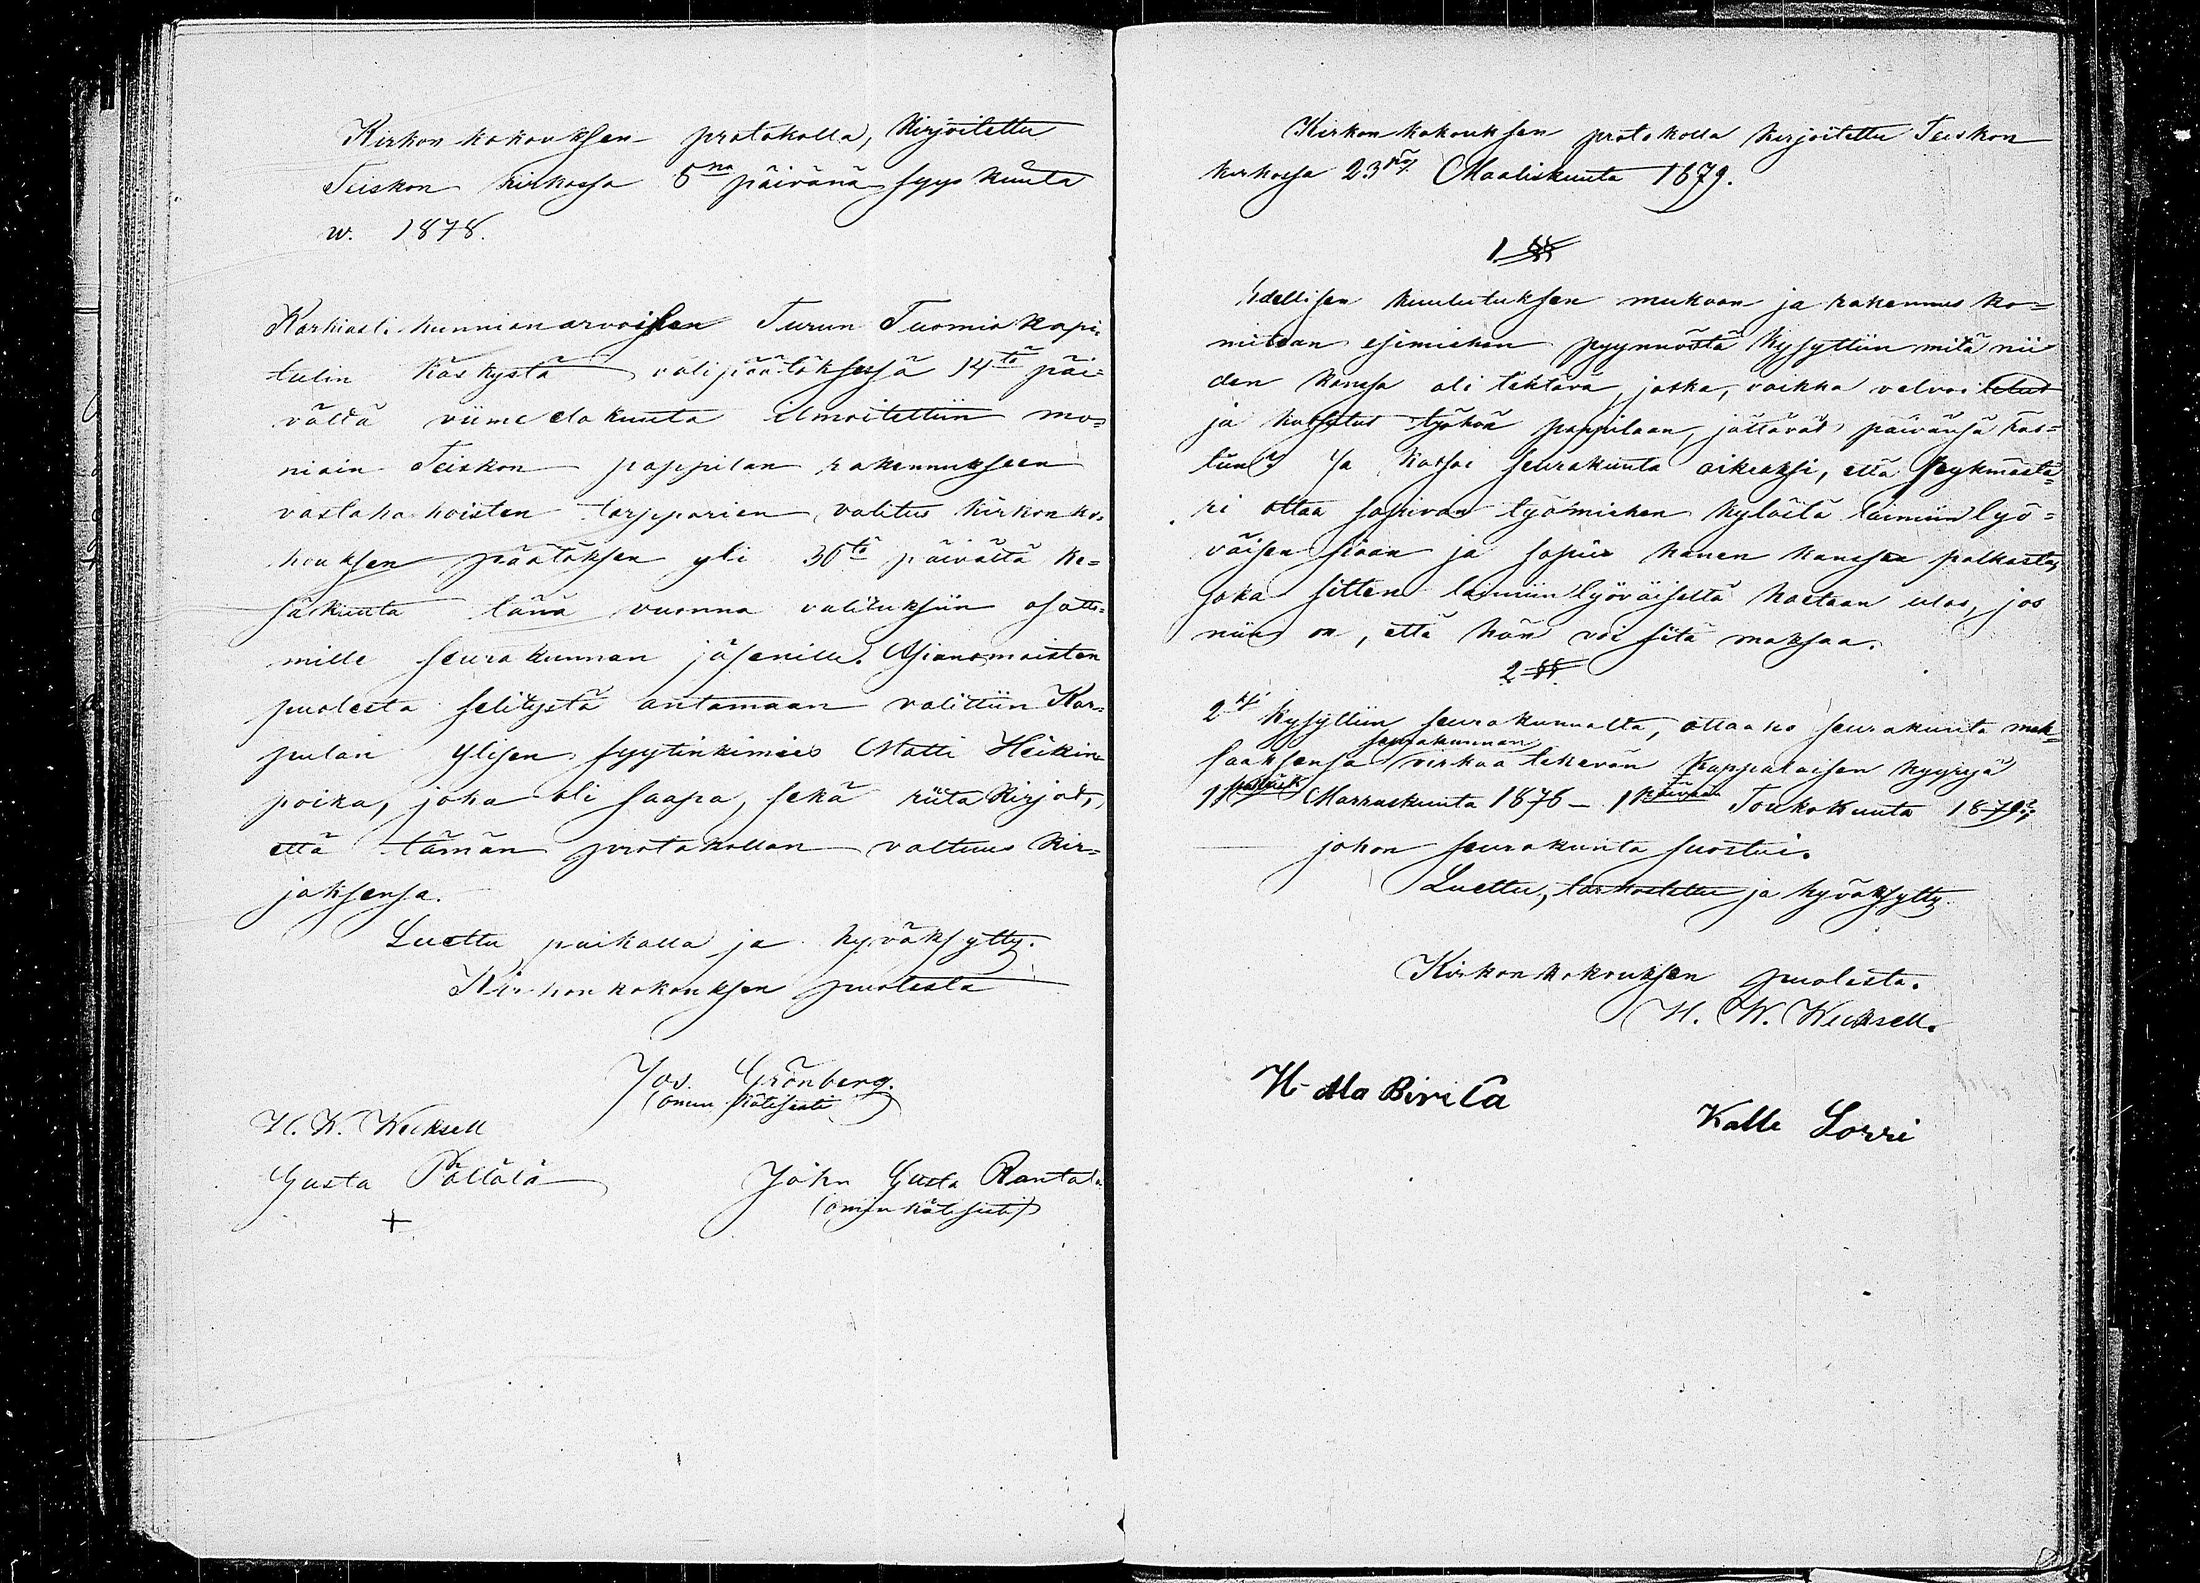 Kirkon kokouksen protokolla, kirjoitettu
Teiskon kirkossa 8na päivänä syys kuuta
w. 1878.
Korkiasti kunnianarvoisen Turun Tuomio kapi-
tulin käskystä välipäätöksessä 14tä päi-
vältä viime elokuuta ilmoitettiin mo-
niain Teiskon pappilan rakennukseen
vastahakoisten torpparien valitus kirkon ko-
kouksen päätöksen yli 30tä päivältä ke-
säkuuta tänä vuonna valituksiin osatto-
mille seurakunnan jäsenille. Asianomaisten
puolesta selitystä antamaan valittiin Kar-
pulan Ylisen syytinkimies Matti Heikin-
poika, joka oli saapa, sekä riita kirjat,
että tämän protokollan valtuus kir-
jaksensa.
Luettu paikalla ja hyväksytty.
Kirkonkokouksen puolesta
Jos. Grönberg.
(oman kätisesti)
H. W. Wecksell
Gusta Pöllölä
+
John Gusta Rantala
(oman kätisesti)
Kirkon kokouksen protokolla kirjoitettu Teiskon
kirkossa 23 Maaliskuuta 1879.
1 §§
Edellisen kuulutuksen mukaan ja rakennus ko-
mitean esimiehen pyynnöstä kysyttiin mitä nii
den kanssa oli tehtävä, jotka, vaikka velvoitetut
ja kutsutut työhön pappilaan, jättävät päivänsä käs-
tun? Ja katsoi seurakunta oikeaksi, että Pyhmästä-
ri ottaa sopivan työmiehen kylästä laimiinlyö-
väisen siaan ja sopii hänen kanssaa palkasta,
joka sitten laimiinlyöväiseltä haetaan ulos, jos
niin on, että hän voi sitä maksaa.
2 §§
2 kysyttiin seurakunnalta, ottaako seurakunta mak-
saaksensa seurakunnan virkaa tekevän Kappalaisen kyytejä
1 Marraskuuta 1878 – 1 Toukokuuta 1879?;
johon seurakunta suostui.
Luettu, tarkastettu ja hyväksytty.
Kirkon kokouksen puolesta.
H. W. Wecksell.
Kalle Sorri